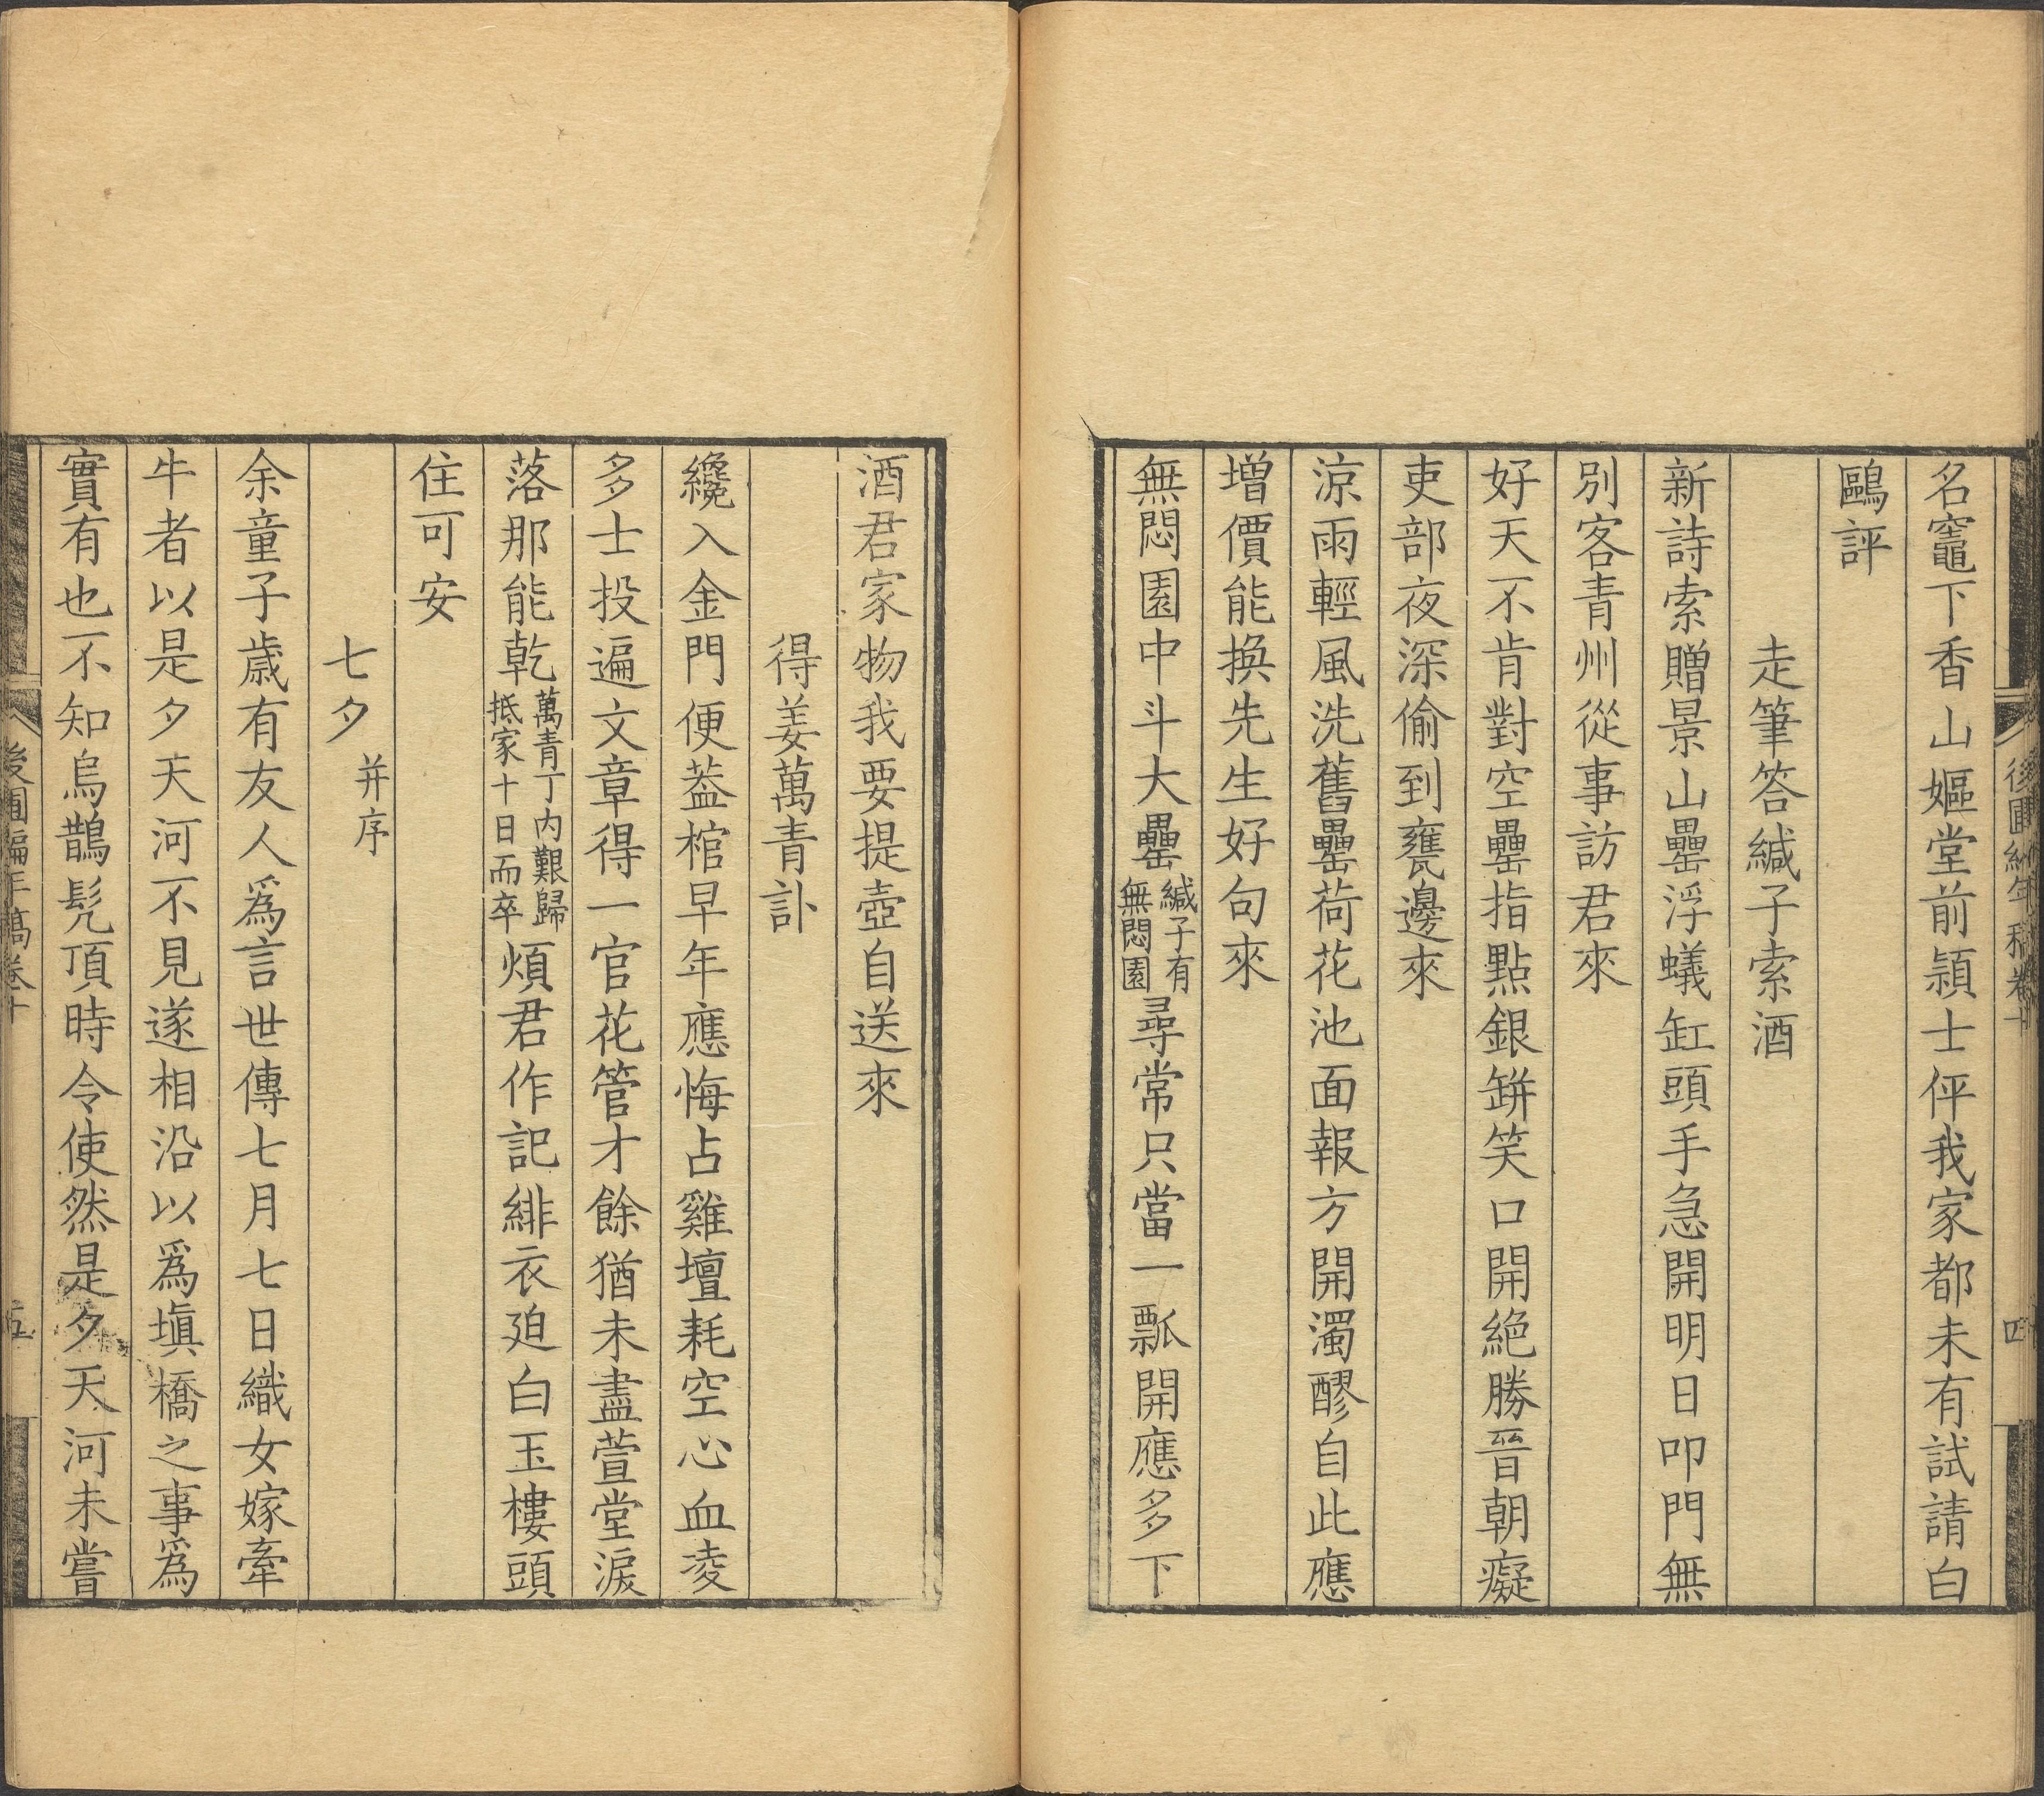 名竈下香山嫗堂前潁士伻我家都未有試請白
鷗評
走筆答緘子索酒
新詩索贈景山罍浮蟻缸頭手急開明日叩門無
別客青州從事訪君來
好天不肯對空罍指點銀缾笑口開絕勝晉朝癡
吏部夜深偷到甕邊來
涼雨輕風洗舊罍荷花池面報方開濁醪自此應
增價能換先生好句來
無悶園中斗大罍緘子有無悶園尋常只當一瓢開應多下
後圃編年稿卷十
四
酒君家物我要提壺自送來
得姜萬青訃
纔入金門便蓋棺早年應悔占雞壇耗空心血凌
多士投遍文章得一官花管才餘猶未盡萱堂淚
落那能乾萬青丁内艱歸抵家十日而卒煩君作記緋衣廹白玉樓頭
住可安
七夕并序
余童子歲有友人爲言世傳七月七日織女嫁牽
牛者以是夕天河不見遂相沿以爲塡橋之事爲
實有也不知烏鵲髡頂時令使然是夕天河未嘗
後圃編年稿卷十
五